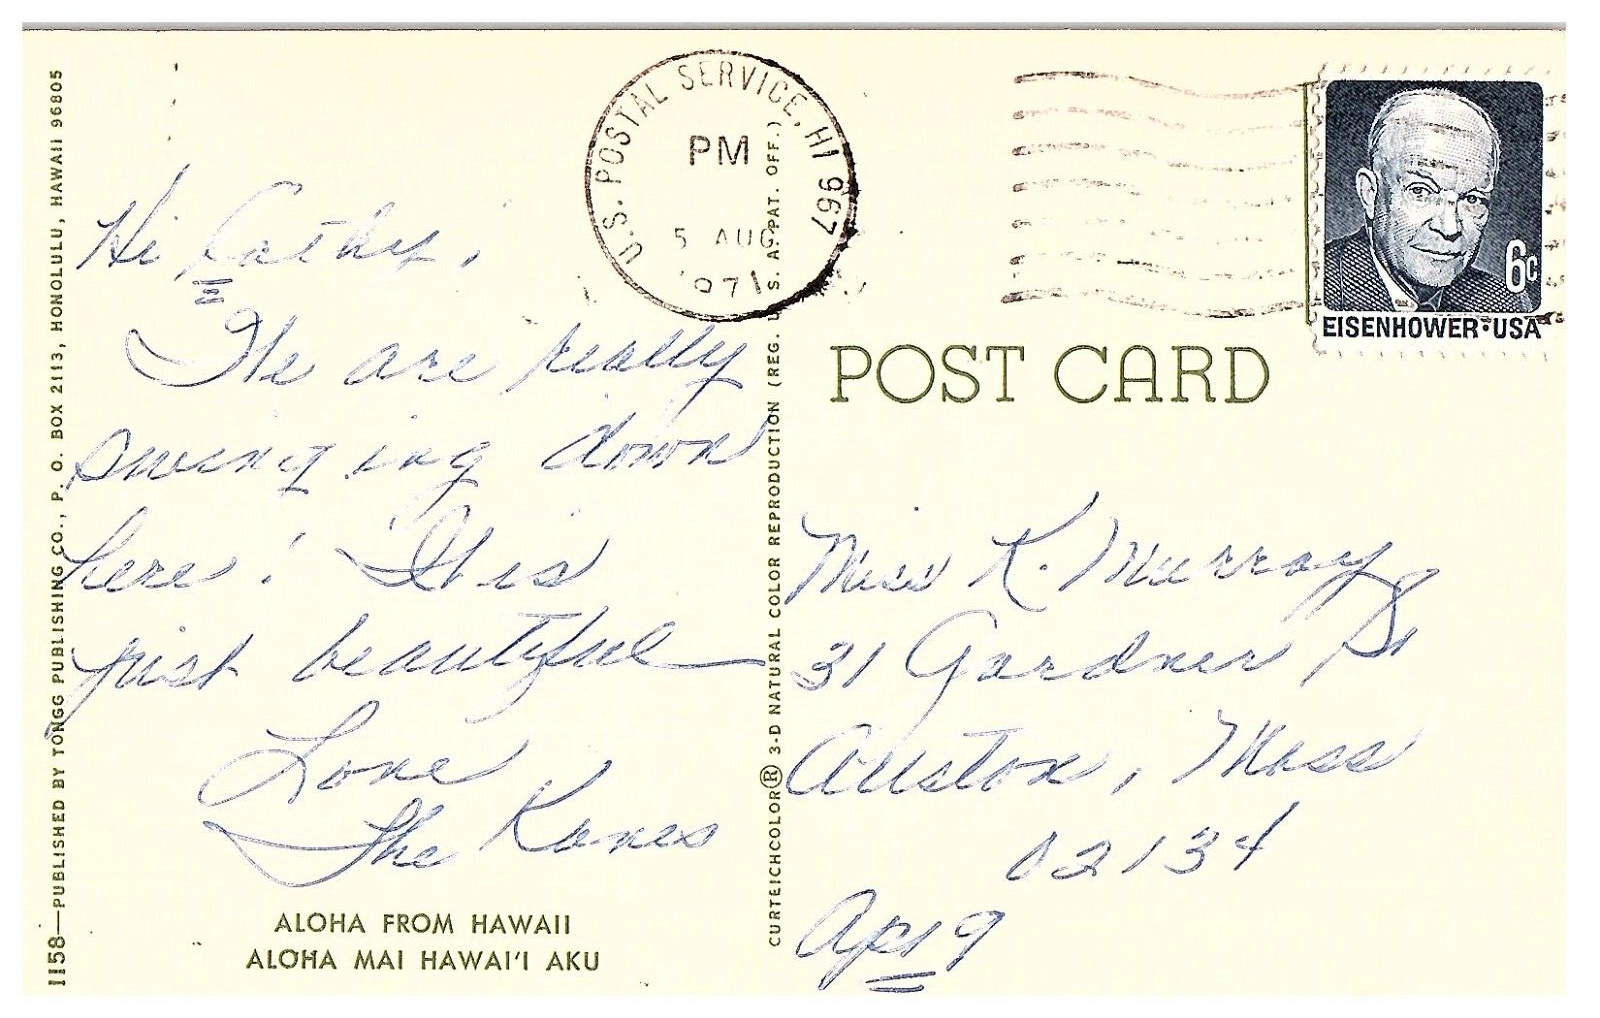 1158—PUBLISHED BY TONGG PUBLISHING CO., P. O. BOX 2113, HONOLULU, HAWAII 96805
Hi Cathy,
We are really
swinging down
here! It is
just beautiful
Love
The Kanes
ALOHA FROM HAWAII
ALOHA MAI HAWAI'I AKU
U.S. POSTAL SERVICE, HI 967
PM
5 AUG
1971
CURTEICHCOLOR® 3-D NATURAL COLOR REPRODUCTION (REG. U.S. A. PAT. OFF.)
6c
EISENHOWER·USA
POST CARD
Miss K. Murray
31 Gardner St
Allston, Mass
02134
Apt 9